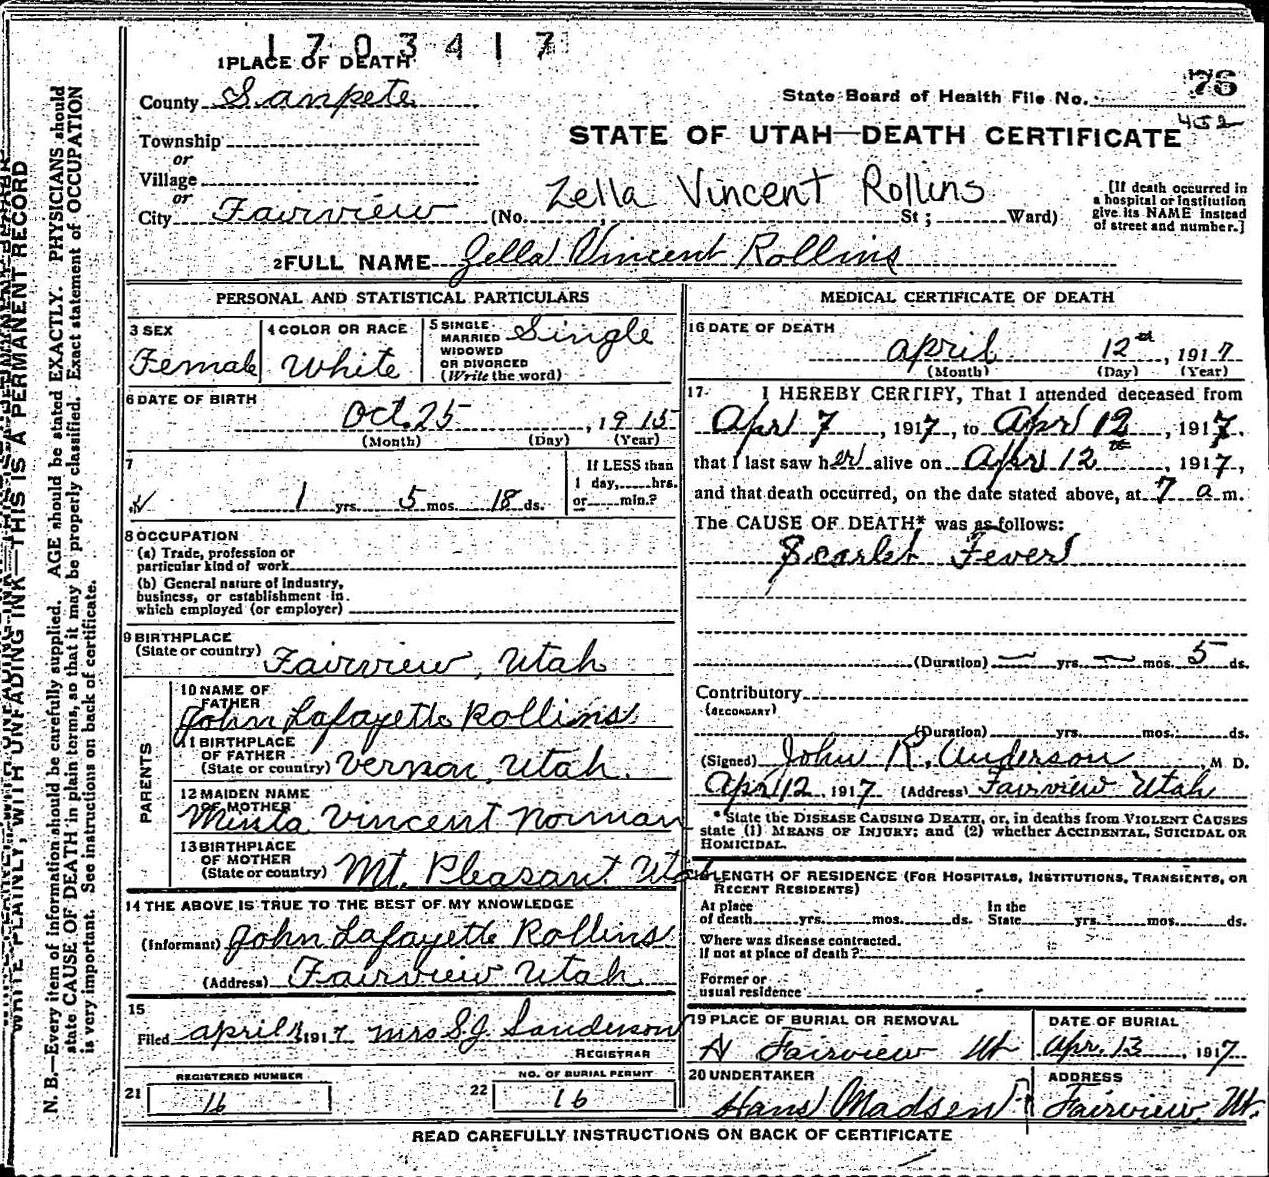 1703417
1 PLACE OF DEATH
County Sanpete
State Board of Health File No. 76
452
STATE OF UTAH—DEATH CERTIFICATE
Township
or
Village
or
City Fairview (No. ; St; Ward)
Zella Vincent Rollins
[If death occurred in
a hospital or institution
give its NAME instead
of street and number.]
2 FULL NAME Zella Vincent Rollins
PERSONAL AND STATISTICAL PARTICULARS
3 SEX
Female
4 COLOR OR RACE
White
5 SINGLE
MARRIED
WIDOWED
OR DIVORCED
(Write the word)
Single
6 DATE OF BIRTH
Oct. 25, 1915
(Month) (Day) (Year)
7
1 yrs. 5 mos. 18 ds.
If LESS than
1 day, hrs.
or min.?
8 OCCUPATION
(a) Trade, profession or
particular kind of work
(b) General nature of industry,
business, or establishment in
which employed (or employer)
9 BIRTHPLACE
(State or country) Fairview, Utah
PARENTS
10 NAME OF
FATHER
John Lafayette Rollins
11 BIRTHPLACE
OF FATHER
(State or country) Vernon, Utah.
12 MAIDEN NAME
OF MOTHER
Minta Vincent Norman
13 BIRTHPLACE
OF MOTHER
(State or country) Mt. Pleasant Utah
14 THE ABOVE IS TRUE TO THE BEST OF MY KNOWLEDGE
(Informant) John Lafayette Rollins
(Address) Fairview Utah
15
Filed April 1917 Mrs S.J. Sanderson
REGISTRAR
21 REGISTERED NUMBER
16
22 NO. OF BURIAL PERMIT
16
MEDICAL CERTIFICATE OF DEATH
16 DATE OF DEATH
April 12th, 1917
(Month) (Day) (Year)
17 I HEREBY CERTIFY, That I attended deceased from
Apr 7, 1917, to Apr 12, 1917.
that I last saw her alive on Apr 12th, 1917,
and that death occurred, on the date stated above, at 7 a m.
The CAUSE OF DEATH* was as follows:
Scarlet Fever
(Duration) — yrs. — mos. 5 ds.
Contributory
(SECONDARY)
(Duration) yrs. mos. ds.
(Signed) John R. Anderson, M D.
Apr 12, 1917 (Address) Fairview Utah
*State the DISEASE CAUSING DEATH, or, in deaths from VIOLENT CAUSES
state (1) MEANS OF INJURY; and (2) whether ACCIDENTAL, SUICIDAL OR
HOMICIDAL.
LENGTH OF RESIDENCE (FOR HOSPITALS, INSTITUTIONS, TRANSIENTS, OR
RECENT RESIDENTS)
At place
of death yrs. mos. ds.
In the
State yrs. mos. ds.
Where was disease contracted.
If not at place of death?
Former or
usual residence
19 PLACE OF BURIAL OR REMOVAL
Fairview Ut
DATE OF BURIAL
Apr. 13, 1917
20 UNDERTAKER
Hans Madsen
ADDRESS
Fairview, Ut.
READ CAREFULLY INSTRUCTIONS ON BACK OF CERTIFICATE
WRITE PLAINLY, WITH UNFADING INK—THIS IS A PERMANENT RECORD
N. B.—Every item of information should be carefully supplied. AGE should be stated EXACTLY. PHYSICIANS should
state CAUSE OF DEATH in plain terms, so that it may be properly classified. Exact statement of OCCUPATION
is very important. See instructions on back of certificate.